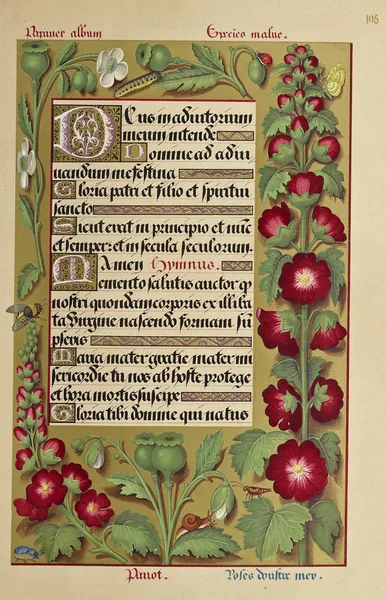 105
Papaver album
Species malue.
Deus in adiutorium
meum intende
Domine ad adiu
uandum me festina
Gloria patri et filio et spiritui
sancto
Sicut erat in principio et nūc
et semper: et in secula seculorum.
Amen Hymnus.
Memento salutis auctor q
nostri quondam corporis ex illiba
ta Virgine nascendo formam sū
pseris
Maria mater gratie mater mi
sericordie tu nos ab hoste protege
et hora mortis suscipe
Gloria tibi domine qui natus
Pavot.
Roses doultre mer.